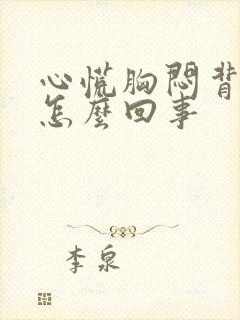 心慌胸悶背
怎麼回事
李泉